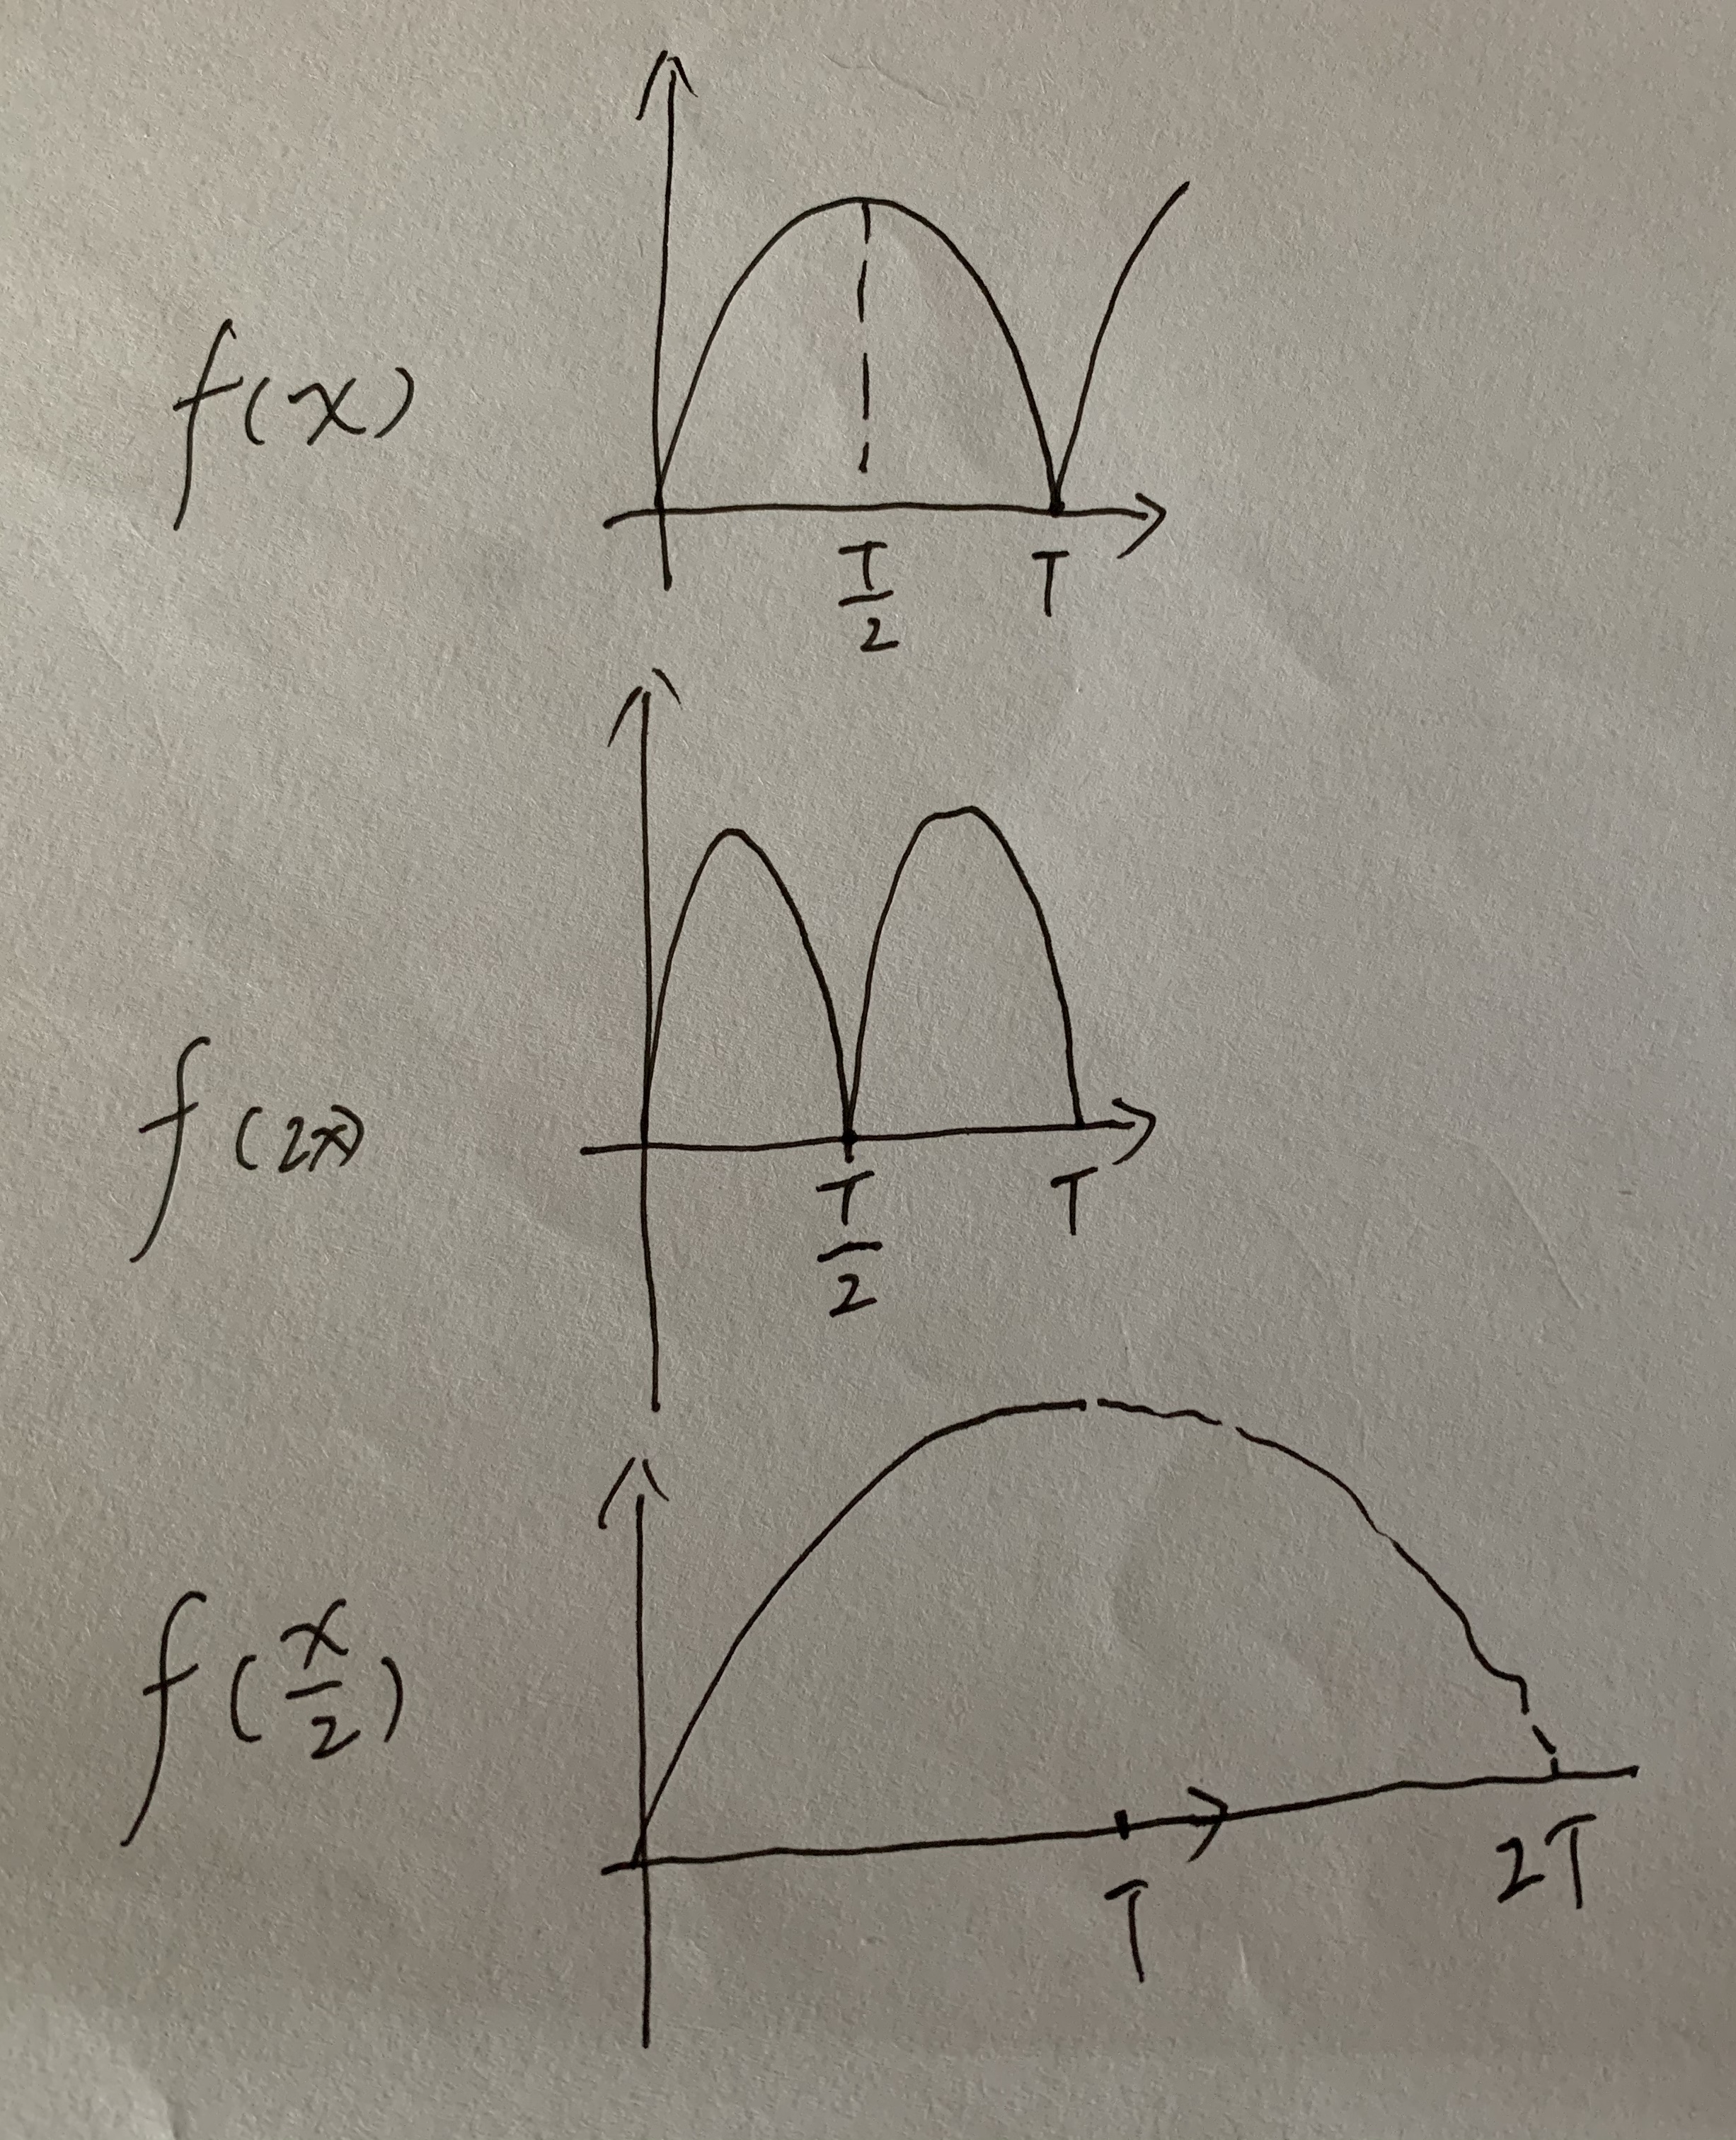 f(x)
T/2 T
f(2x)
T/2 T
f(x/2)
T 2T